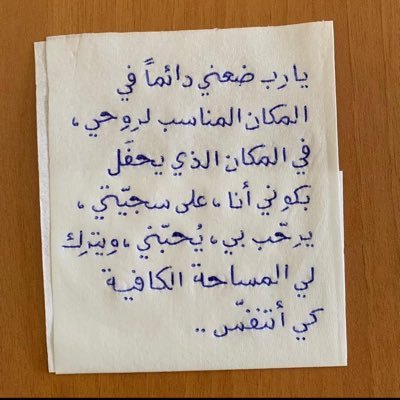 يارب ضعني دائماً في
المكان المناسب لروحي،
في المكان الذي يحفَل
بكوني أنا، على سجيّتي،
يرحّب بي، يُحبّني، ويترك
لي المساحة الكافية
كي أتنفّس ..